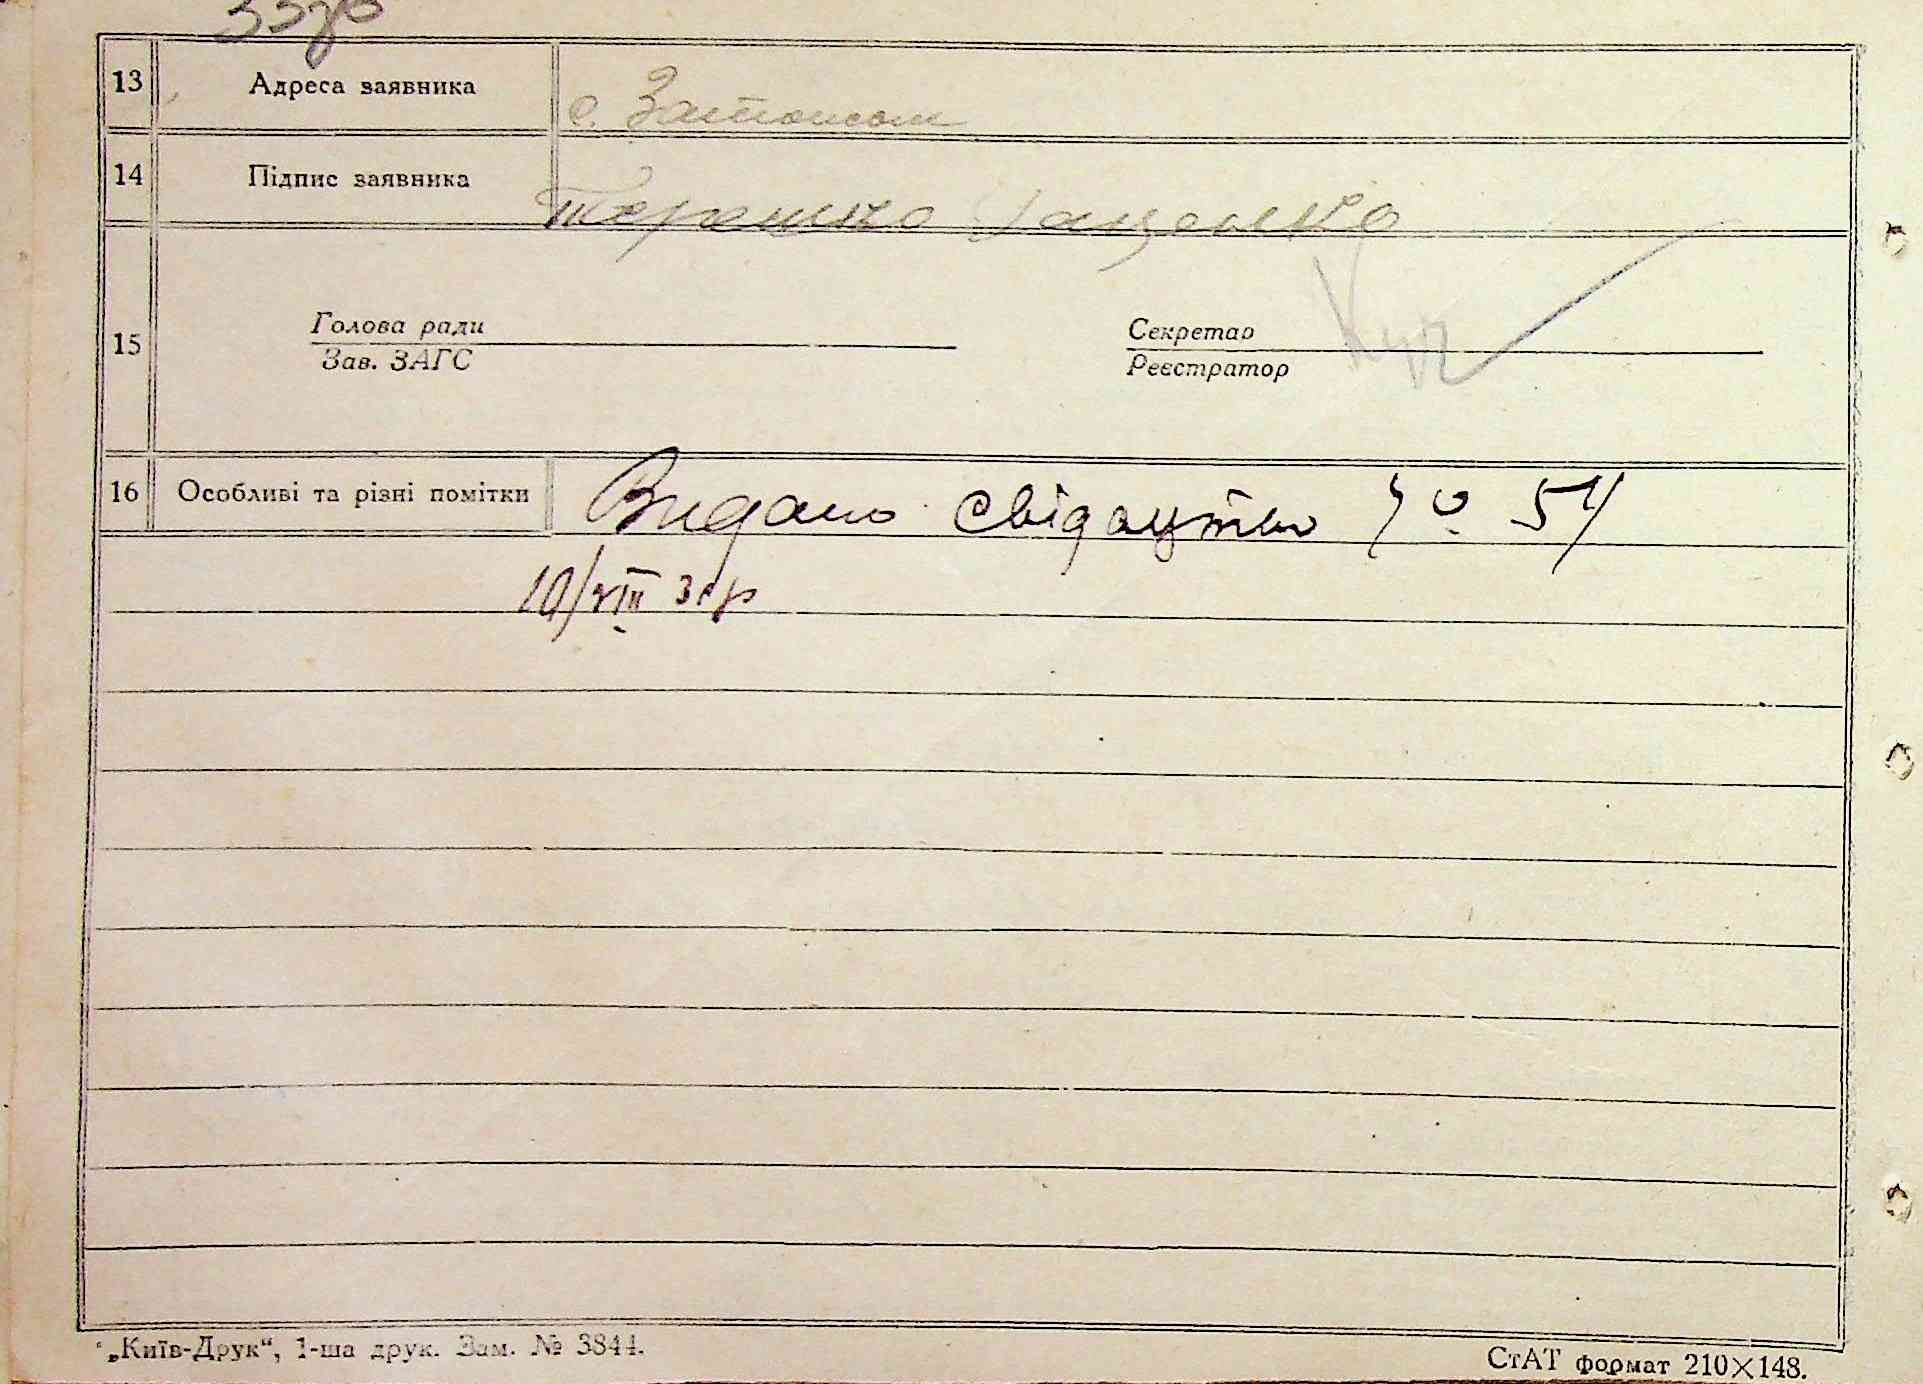 33р
13 Адреса заявника
с.
14 Підпис заявника
Терешко Яценко
15 Голова ради Секретар
Зав. ЗАГС Реєстратор
16 Особливі та різні помітки Видано свідоцтво № 54
10/VIII 33р
„Київ-Друк“, 1-ша друк. Зам. № 3844.
СтАТ формат 210×148.